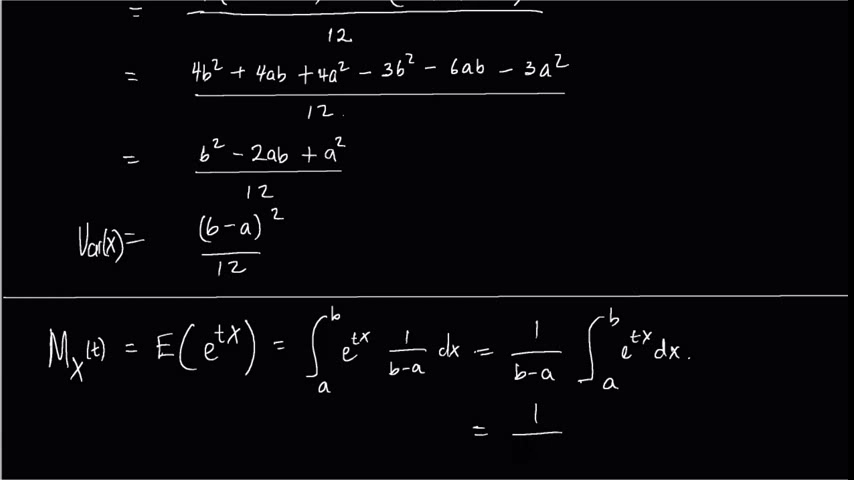 = 12
= 4b² + 4ab + 4a² - 3b² - 6ab - 3a² / 12.
= b² - 2ab + a² / 12
Var(x) = (b-a)² / 12
M_X(t) = E(e^{tX}) = ∫_a^b e^{tx} 1/(b-a) dx = 1/(b-a) ∫_a^b e^{tx} dx.
= 1